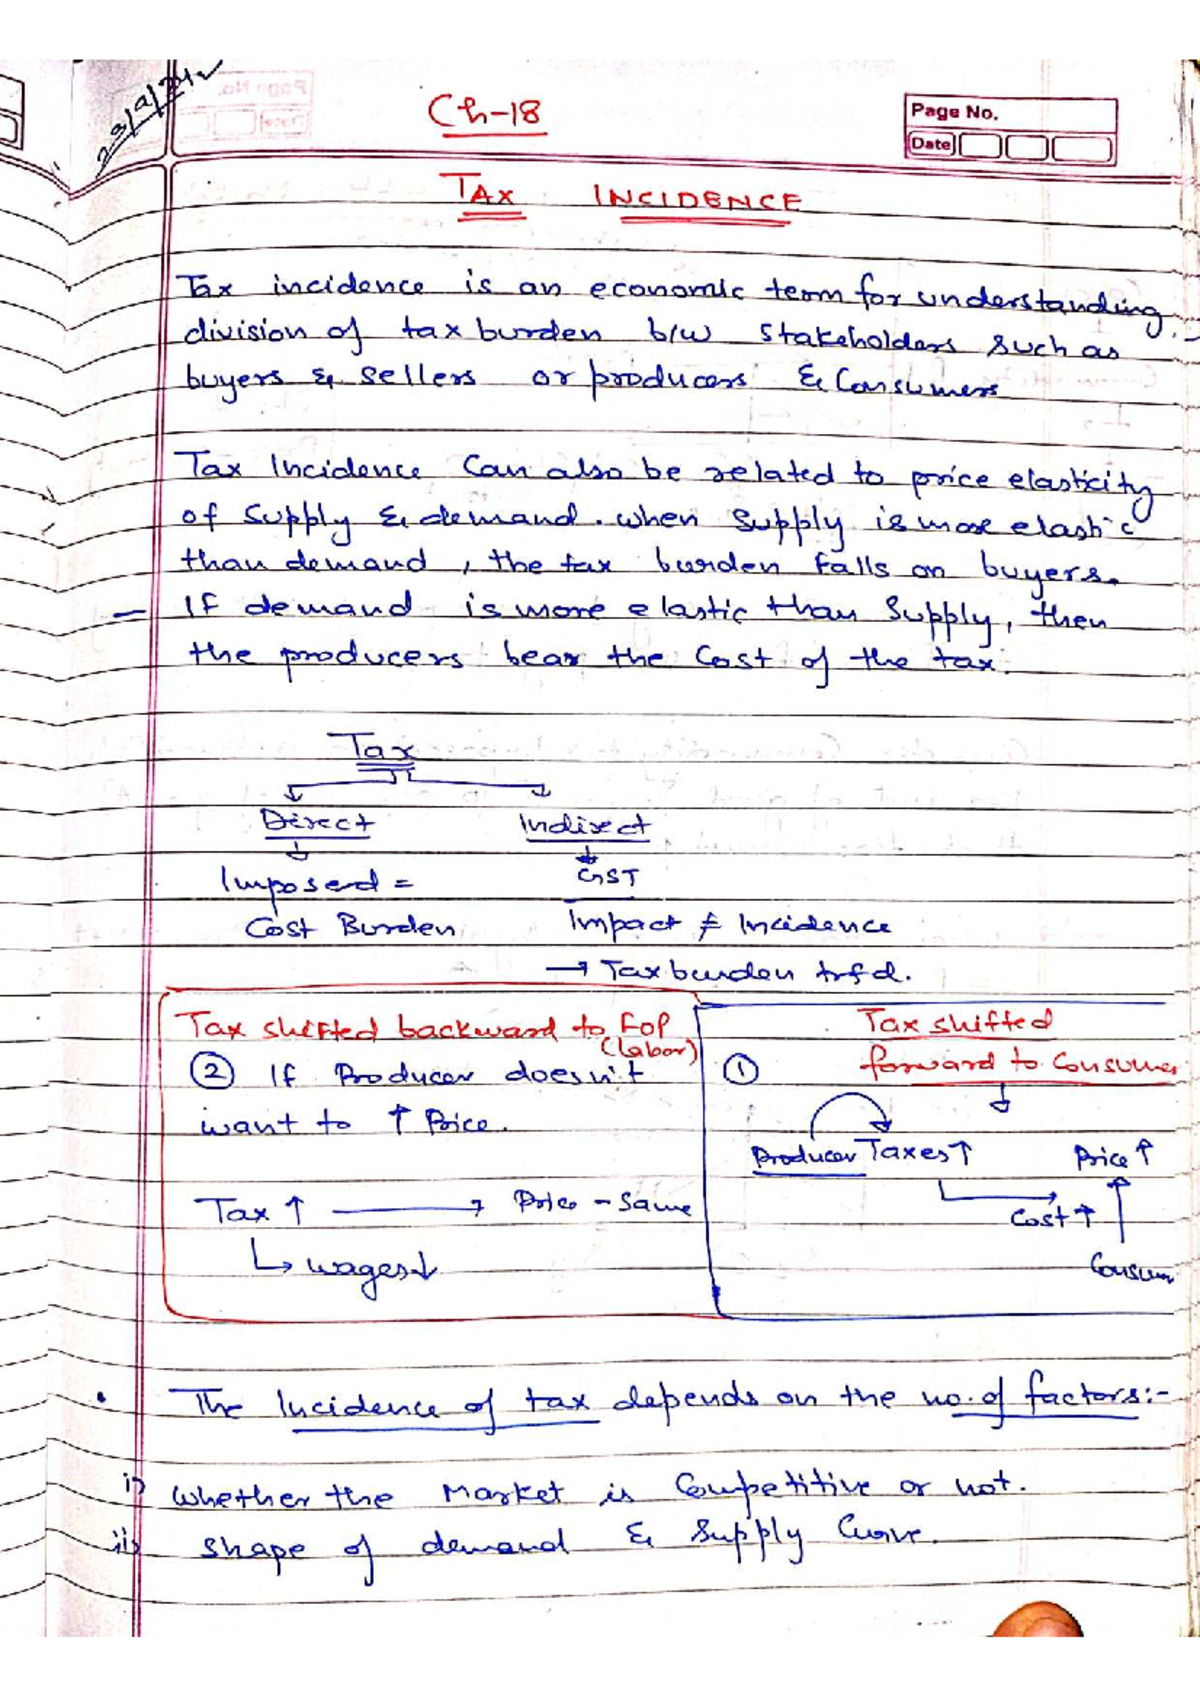 23/9/24
Ch-18
Page No.
Date
TAX INCIDENCE
Tax incidence is an economic term for understanding
division of tax burden b/w stakeholders such as
buyers & sellers or producers & Consumers
Tax Incidence Can also be related to price elasticity
of Supply & demand. when Supply is more elastic
than demand, the tax burden falls on buyers.
- If demand is more elastic than Supply, then
the producers bear the Cost of the tax.
Tax
Direct Indirect
Imposed = GST
Cost Burden Impact ≠ Incidence
→ Tax burden trfd.
Tax shifted backward to FOP
(labor)
② If Producer doesn't
want to ↑ Price.
Tax ↑ → Price - Same
↳ wages↓
Tax shifted
① forward to Consumer
Producer Taxes↑ Price↑
Cost↑
Consum
• The Incidence of tax depends on the no. of factors:-
i) Whether the Market is Competitive or not.
ii) Shape of demand & Supply Curve.